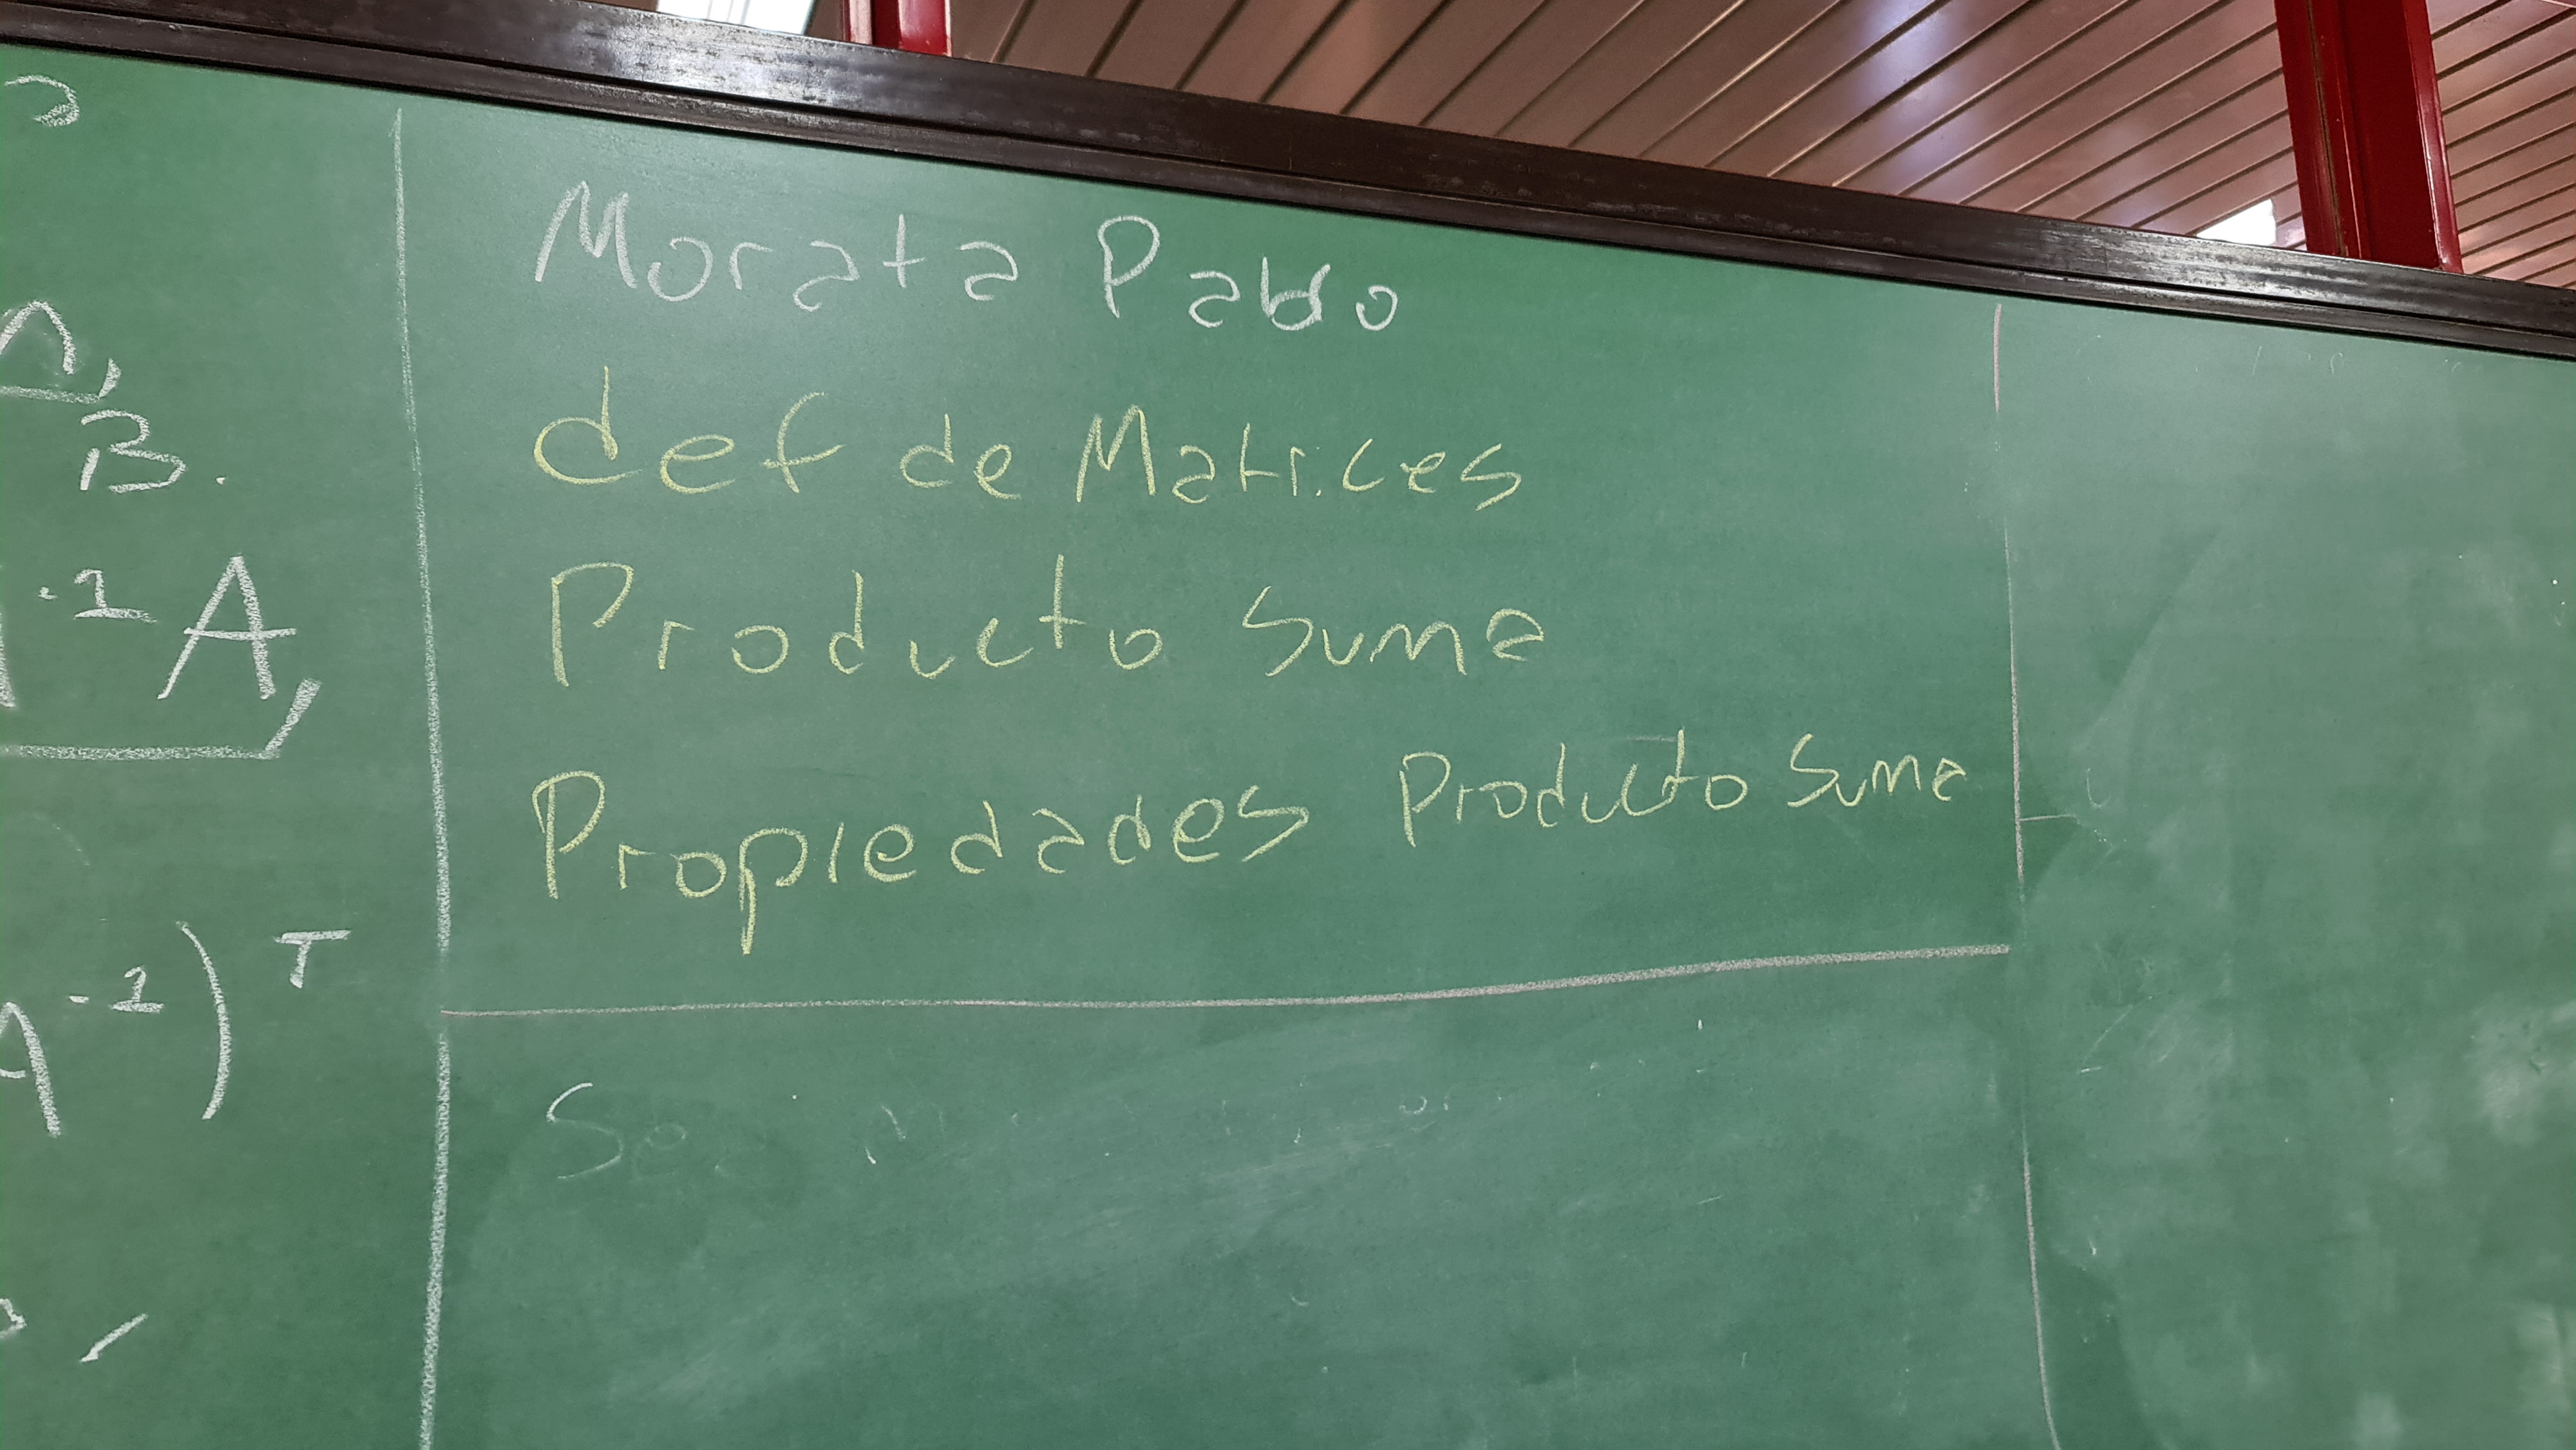 B.
-1 A,
-1) T
Morata Pablo
def de Matrices
Producto Suma
Propiedades Producto Suma